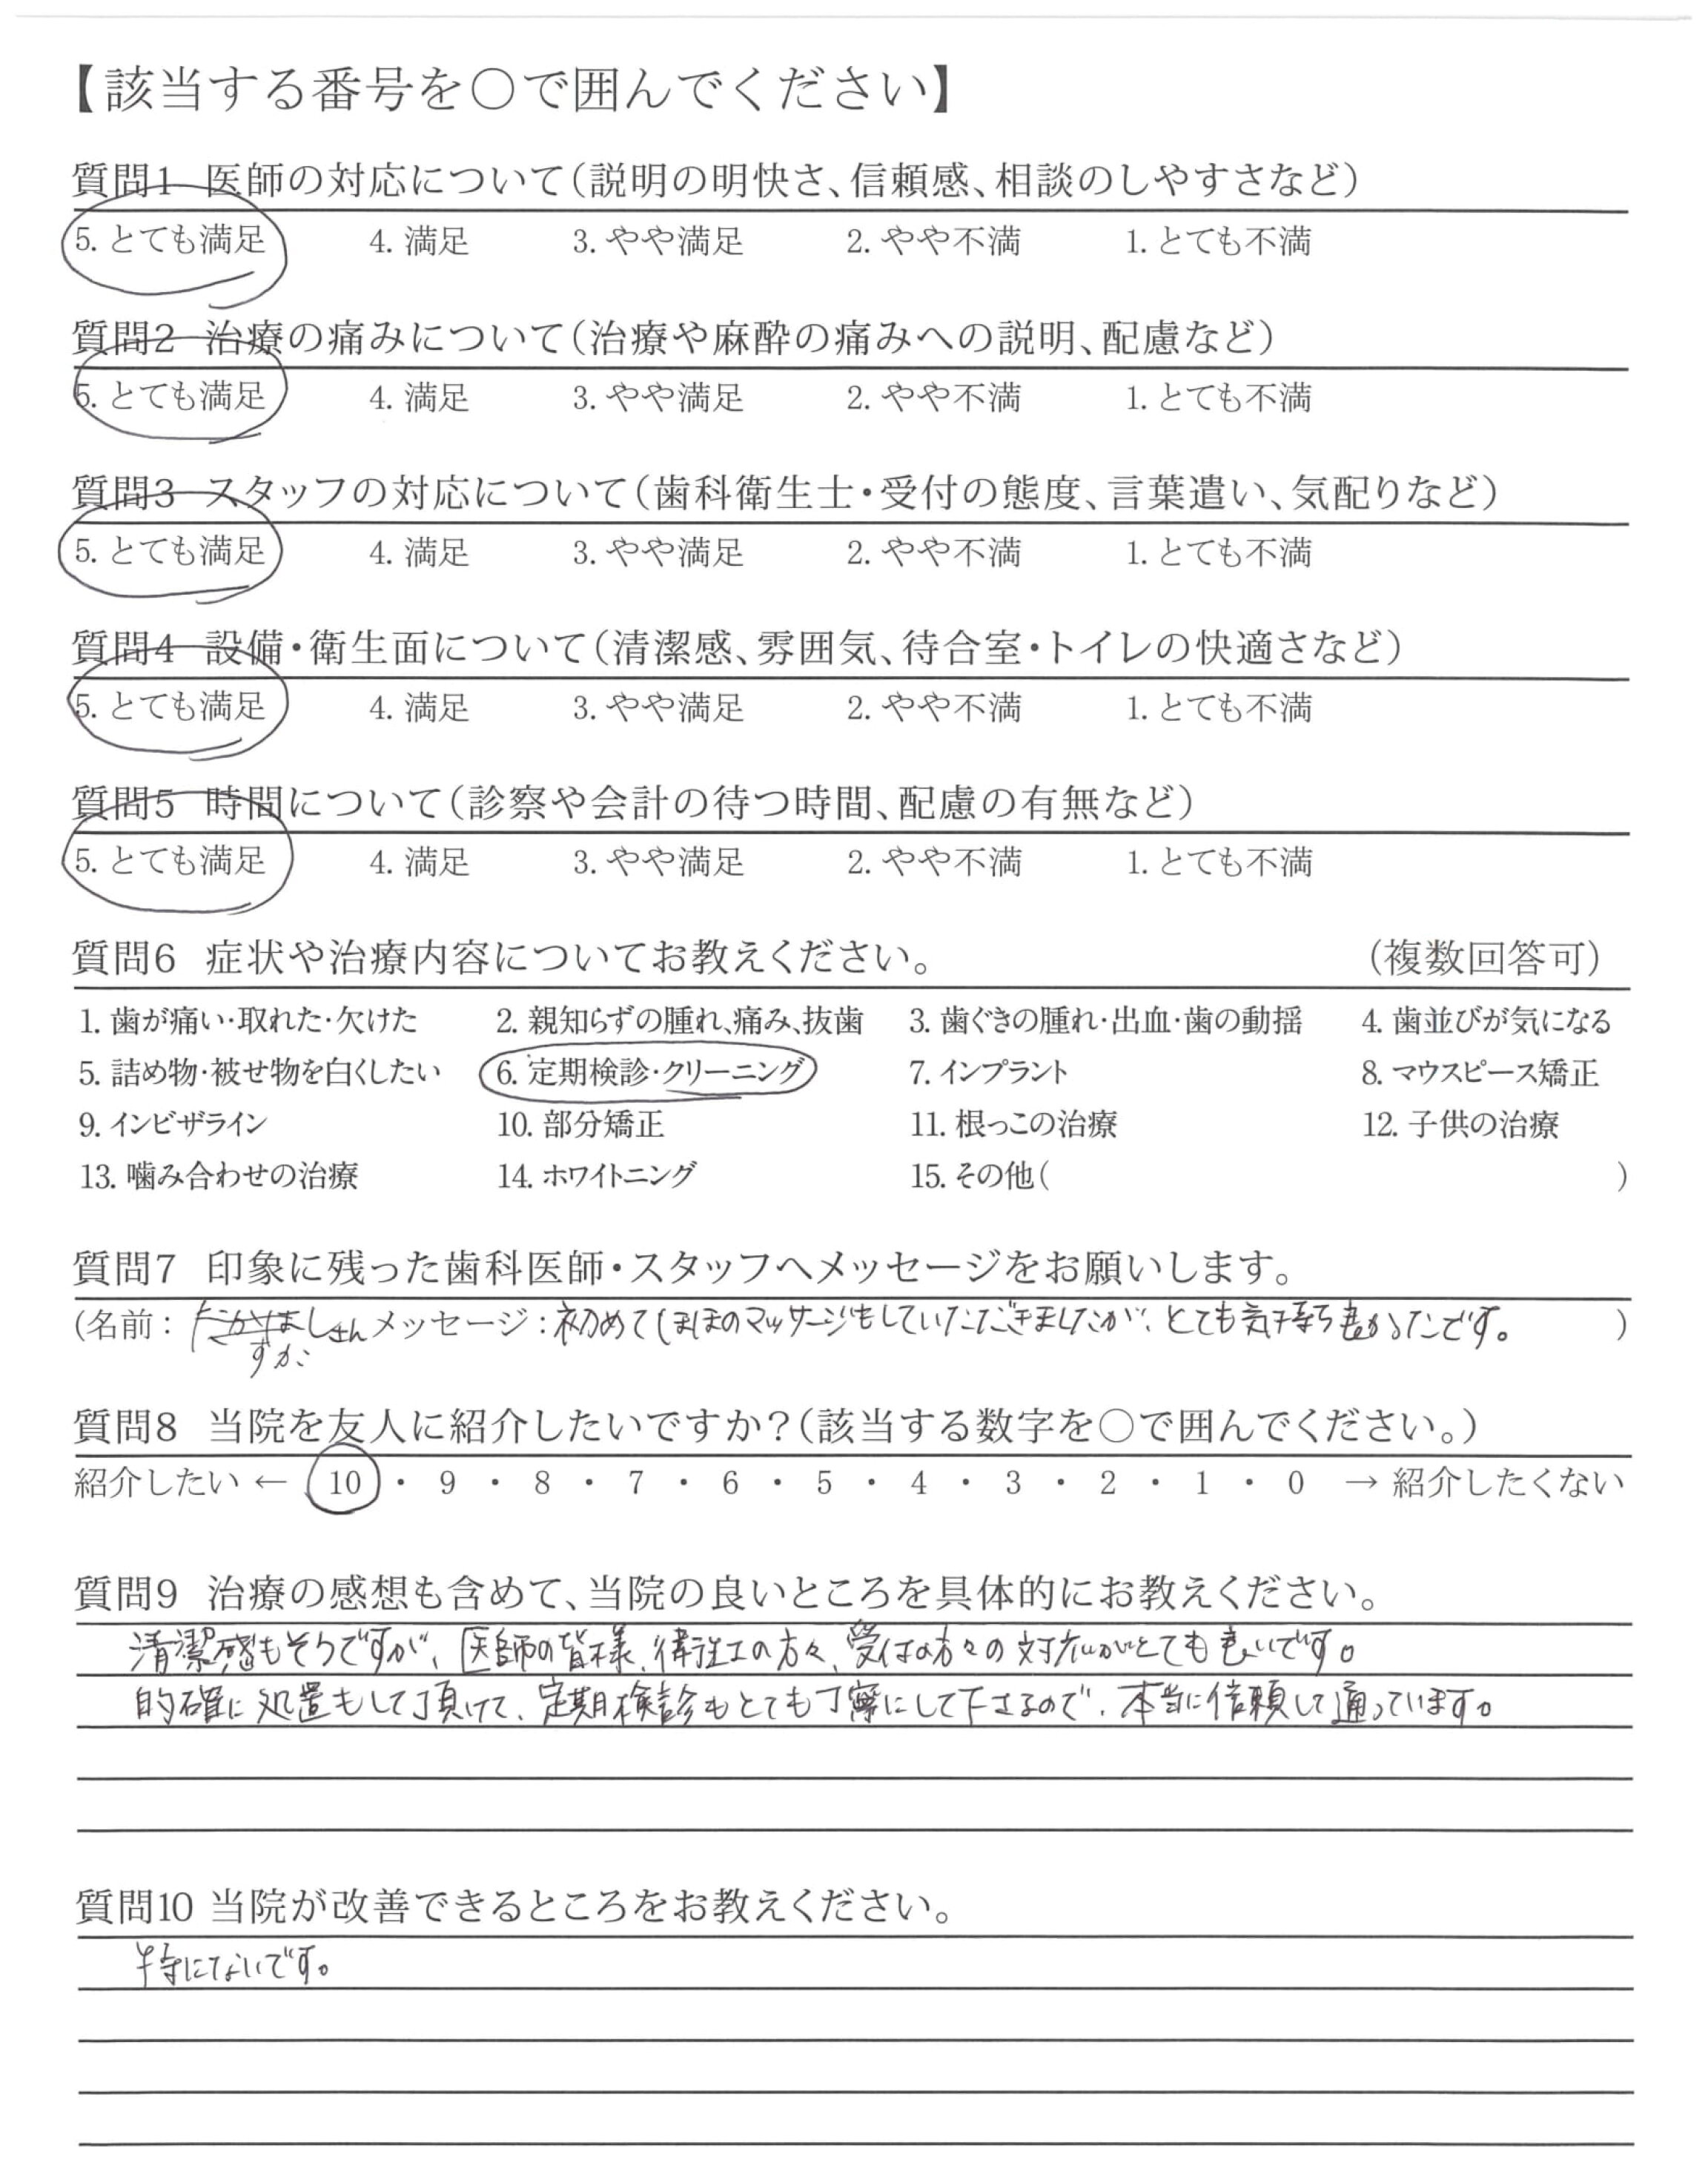 【該当する番号を○で囲んでください】
質問1 医師の対応について(説明の明快さ、信頼感、相談のしやすさなど)
5. とても満足 4. 満足 3. やや満足 2. やや不満 1. とても不満
質問2 治療の痛みについて(治療や麻酔の痛みへの説明、配慮など)
5. とても満足 4. 満足 3. やや満足 2. やや不満 1. とても不満
質問3 スタッフの対応について(歯科衛生士・受付の態度、言葉遣い、気配りなど)
5. とても満足 4. 満足 3. やや満足 2. やや不満 1. とても不満
質問4 設備・衛生面について(清潔感、雰囲気、待合室・トイレの快適さなど)
5. とても満足 4. 満足 3. やや満足 2. やや不満 1. とても不満
質問5 時間について(診察や会計の待つ時間、配慮の有無など)
5. とても満足 4. 満足 3. やや満足 2. やや不満 1. とても不満
質問6 症状や治療内容についてお教えください。 (複数回答可)
1. 歯が痛い・取れた・欠けた 2. 親知らずの腫れ、痛み、抜歯 3. 歯ぐきの腫れ・出血・歯の動揺 4. 歯並びが気になる
5. 詰め物・被せ物を白くしたい 6. 定期検診・クリーニング 7. インプラント 8. マウスピース矯正
9. インビザライン 10. 部分矯正 11. 根っこの治療 12. 子供の治療
13. 噛み合わせの治療 14. ホワイトニング 15. その他( )
質問7 印象に残った歯科医師・スタッフへメッセージをお願いします。
(名前: さん メッセージ: 初めてほほのマッサージもしていただきましたが、とても気持ち良かったです。 )
質問8 当院を友人に紹介したいですか?(該当する数字を○で囲んでください。)
紹介したい ← 10 ・ 9 ・ 8 ・ 7 ・ 6 ・ 5 ・ 4 ・ 3 ・ 2 ・ 1 ・ 0 → 紹介したくない
質問9 治療の感想も含めて、当院の良いところを具体的にお教えください。
清潔感もそうですが、医師の皆様、衛生士の方々、受付の方々の対応がとても良いです。
的確に処置もして頂けて、定期検診もとても丁寧にして下さるので、本当に信頼して通っています。
質問10 当院が改善できるところをお教えください。
特にないです。